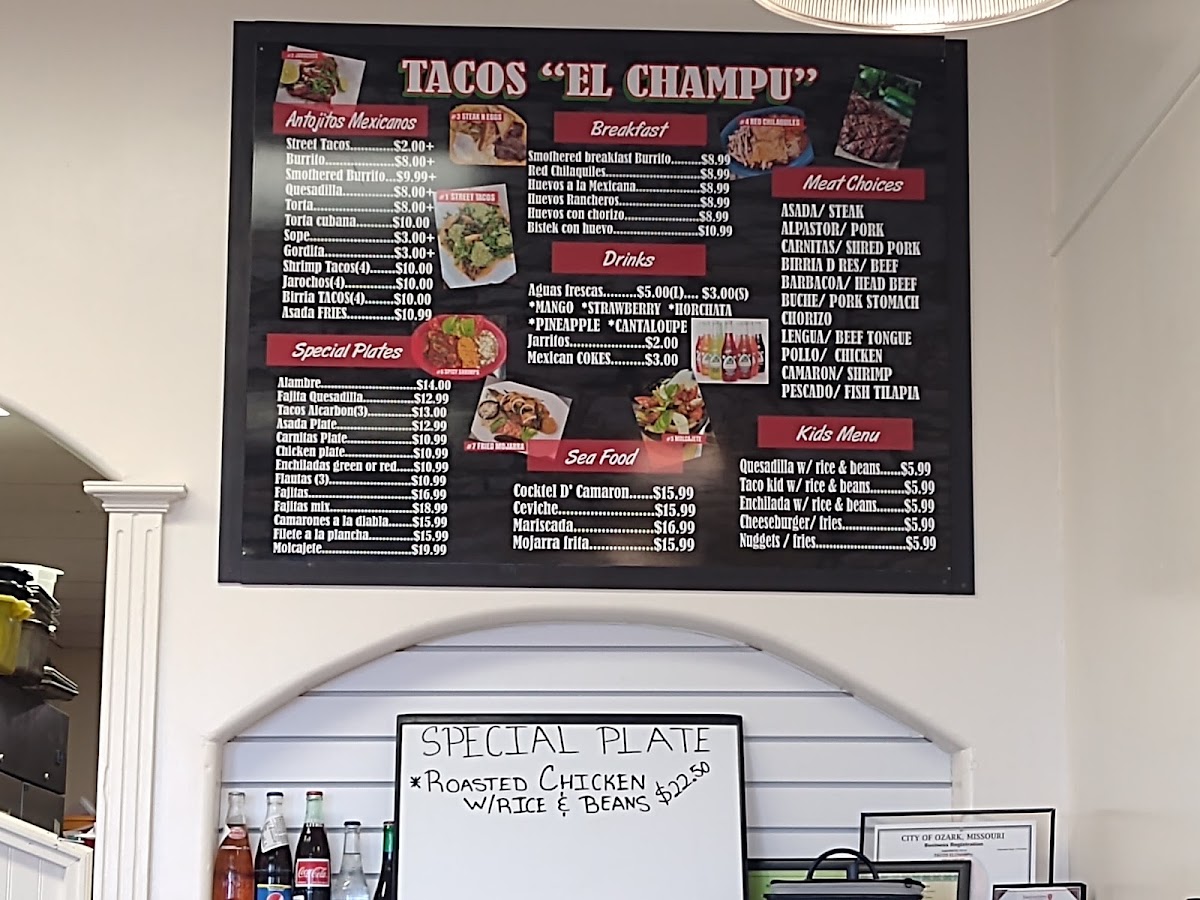 TACOS "EL CHAMPU"
Antojitos Mexicanos
Street Tacos............$2.00+
Burrito...................$8.00+
Smothered Burrito...$9.99+
Quesadilla..............$8.00+
Torta.....................$8.00+
Torta cubana.........$10.00
Sope......................$3.00+
Gordita..................$3.00+
Shrimp Tacos(4).......$10.00
Jarochos(4)............$10.00
Birria TACOS(4).......$10.00
Asada FRIES............$10.99
Special Plates
Alambre........................$14.00
Fajita Quesadilla.............$12.99
Tacos Alcarbon(3)...........$13.00
Asada Plate....................$12.99
Carnitas Plate.................$10.99
Chicken plate..................$10.99
Enchiladas green or red.....$10.99
Flautas (3).....................$10.99
Fajitas...........................$16.99
Fajitas mix.....................$18.99
Camarones a la diabla.......$15.99
Filete a la plancha............$15.99
Molcajete.......................$19.99
#3 STEAK N EGGS
#1 STREET TACOS
#7 FRIED MOJARRA
Breakfast
Smothered breakfast Burrito........$8.99
Red Chilaquiles.........................$8.99
Huevos a la Mexicana.................$8.99
Huevos Rancheros.....................$8.99
Huevos con chorizo....................$8.99
Bistek con huevo.......................$10.99
#4 RED CHILAQUILES
Drinks
Aguas frescas.........$5.00(L).... $3.00(S)
*MANGO *STRAWBERRY *HORCHATA
*PINEAPPLE *CANTALOUPE
Jarritos......................$2.00
Mexican COKES..........$3.00
Sea Food
Cocktel D' Camaron......$15.99
Ceviche......................$15.99
Mariscada...................$16.99
Mojarra frita...............$15.99
Meat Choices
ASADA/ STEAK
ALPASTOR/ PORK
CARNITAS/ SHRED PORK
BIRRIA D RES/ BEEF
BARBACOA/ HEAD BEEF
BUCHE/ PORK STOMACH
CHORIZO
LENGUA/ BEEF TONGUE
POLLO/ CHICKEN
CAMARON/ SHRIMP
PESCADO/ FISH TILAPIA
Kids Menu
Quesadilla w/ rice & beans......$5.99
Taco kid w/ rice & beans.........$5.99
Enchilada w/ rice & beans.......$5.99
Cheeseburger/ fries................$5.99
Nuggets / fries.......................$5.99
SPECIAL PLATE
*ROASTED CHICKEN
W/RICE & BEANS $22.50
Coca-Cola
CITY OF OZARK, MISSOURI
Business Registration